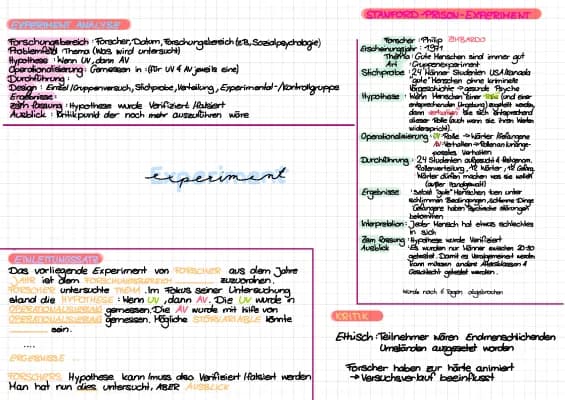 EXPERIMENT ANALYSE
Forschungsbereich: Forscher, Datum, Forschungsbereich (z.B. Sozialpsychologie)
Problemfeld: Thema (Was wird untersucht)
Hypothese: Wenn UV, dann AV
Operationalisierung: Gemessen in: (für UV & AV jeweils eine)
Durchführung:
Design: Einzel/Gruppenversuch, Stichprobe, Verteilung, Experimental-/Kontrollgruppe
Ergebnisse:
Zsm fassung: Hypothese wurde Verifiziert/falsiert
Ausblick: Kritikpunkt der noch mehr auszuführen wäre
experiment
EINLEITUNGSSATZ
Das vorliegende Experiment von FORSCHER aus dem Jahre
JAHR ist dem FORSCHUNGSBEREICH zuzuordnen.
FORSCHER untersuchte THEMA. Im Fokus seiner Untersuchung
stand die HYPOTHESE: Wenn UV, dann AV. Die UV wurde in
OPERATIONALISIERUNG gemessen. Die AV wurde mit hilfe von
OPERATIONALISIERUNG gemessen. Mögliche STÖRVARIABLE könnte
sein.
....
ERGEBNISSE
FORSCHERS Hypothese kann/muss also Verifiziert/falsiert werden
Man hat nun dies untersucht, ABER AUSBLICK
STANFORD-PRISON-EXPERIMENT
Forscher: Philip ZIMBARDO
Erscheinungsjahr: 1971
Thema: Gute Menschen sind immer gut
Art: Gruppenexperiment
Stichprobe: 24 Männer Studenten USA/Kanada
"gute" Menschen ohne kriminelle
Vorgeschichte → gesunde Psyche
Hypothese: Wenn Menschen einer Rolle (und einer
entsprechenden Umgebung) zugeteilt werden,
dann verhalten sie sich entsprechend
dieser Rolle (auch wenn sie ihren Werten
widerspricht).
Operationalisierung: UV-Rolle → Wärter/Gefangene
AV-Verhalten → Rollen
Verhalten
Durchführung: 24 Studenten aufgesucht &
Rollenverteilung, 12 Wärter, 12 Gefang.
Wärter dürfen machen was sie wollen
(außer Handgewalt)
Ergebnisse: Selbst "gute" Menschen tuen unter
schlimmen Bedingungen, schlimme Dinge
Gefangene haben Psychische störungen
bekommen
Interpretation: Jeder Mensch hat etwas schlechtes
in sich
Zsm fassung: Hypothese wurde Verifiziert
Ausblick: Es wurden nur Männer zwischen 20-30
getestet. Damit es Verallgemeinert werden
kann müssen andere Altersklassen &
Geschlecht getestet werden.
Wurde nach 6 Tagen abgebrochen
KRITIK
Ethisch: Teilnehmer wären Endmenschlichenden
Umständen ausgesetzt worden
Forscher haben zur härte animiert
→ Versuchsverlauf beeinflusst